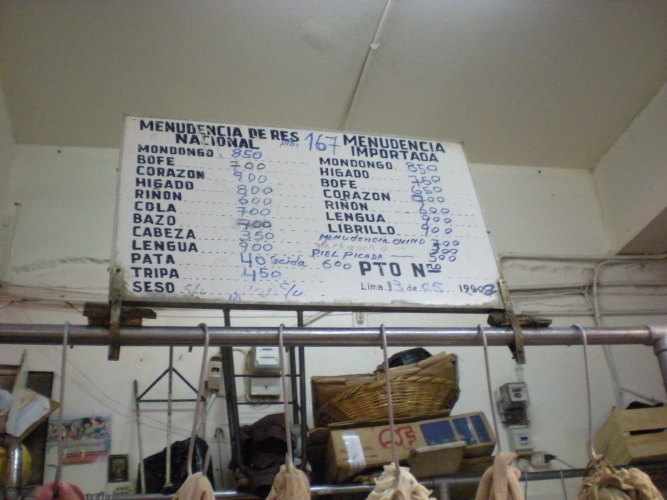 MENUDENCIA DE RES
NACIONAL
MONDONGO 850
BOFE 700
CORAZON 900
HIGADO 800
RIÑON 600
COLA 700
BAZO 700
CABEZA 350
LENGUA 900
PATA 40
TRIPA 450
SESO S/C S/C
167
MENUDENCIA
IMPORTADA
MONDONGO 850
HIGADO 750
BOFE 650
CORAZON 900
RIÑON 600
LENGUA 900
LIBRILLO 900
MENUDENCIA
PIEL PICADA
600
PTO Nº
Lima, 13 de 05